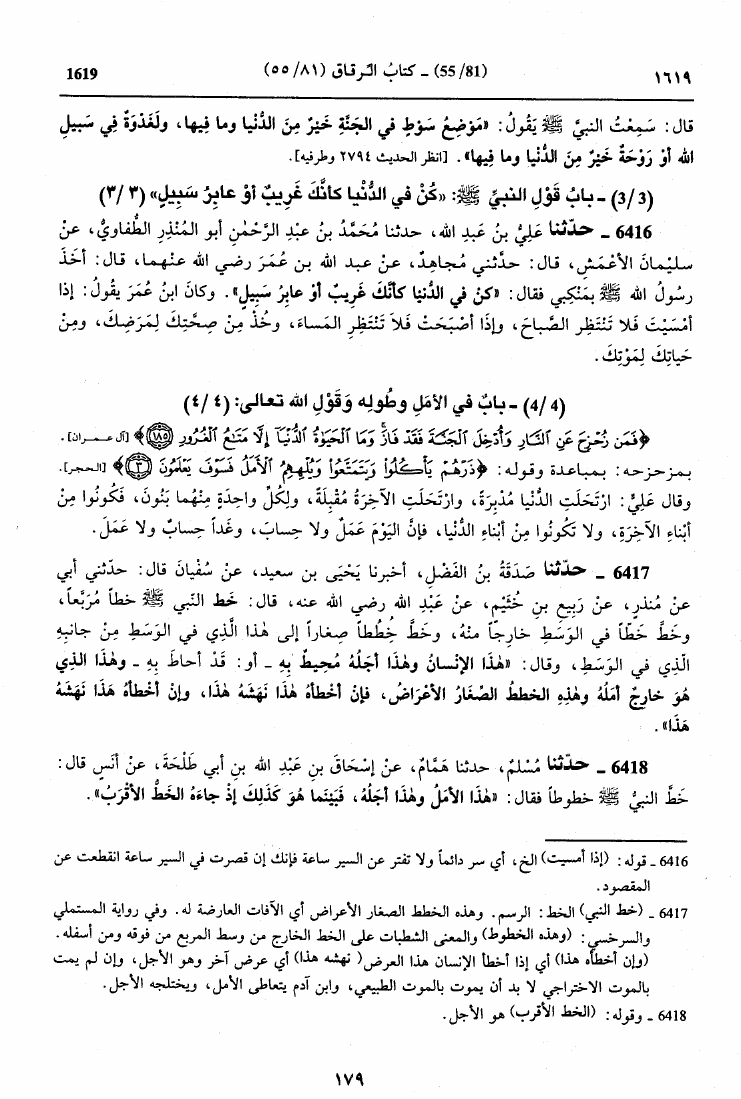 ١٦١٩ (55/81) ـ كتابُ الرقاق (٥٥/٨١) 1619
قال: سَمِعْتُ النبيَّ ﷺ يَقُولُ: «مَوْضِعُ سَوْطٍ في الجَنَّةِ خَيْرٌ مِنَ الدُّنْيا وما فِيها، ولَغَدْوَةٌ فِي سَبيلِ
الله أوْ رَوْحَةٌ خَيْرٌ مِنَ الدُّنْيا وما فِيها». [انظر الحديث ٢٧٩٤ وطرفيه].
(3/3) ـ بابُ قَوْلِ النبيِّ ﷺ: «كُنْ في الدُّنْيا كأنَّكَ غَرِيبٌ أوْ عابِرُ سَبِيلٍ» (٣/٣)
6416 ـ حدّثنا عَلِيُّ بنُ عَبدِ الله، حدثنا مُحَمَّدُ بنُ عبْدِ الرَّحْمٰنِ أبو المُنْذِرِ الطُّفاوِيُّ، عنْ
سليْمانَ الأعْمَشِ، قال: حدَّثني مُجاهِدٌ، عنْ عبد الله بن عُمَرَ رضي الله عنْهما، قال: أخَذَ
رسُولُ الله ﷺ بِمَنْكِبي فقال: «كنْ في الدنيا كأنَّكَ غَرِيبٌ أوْ عابِرُ سَبيلٍ». وكانَ ابنُ عُمَرَ يقُولُ: إذا
أمْسَيْتَ فلا تَنْتَظِرِ الصَّباحَ، وإذَا أصْبَحْتَ فَلاَ تَنْتَظِرِ المَساءَ، وخُذْ مِنْ صِحَّتِكَ لِمَرَضِكَ، ومِنْ
حَياتِكَ لِمَوْتِكَ.
(4/4) ـ بابٌ في الأمَلِ وطُولِه وَقَوْلِ الله تعالى: (٤/٤)
﴿فَمَن زُحْزِحَ عَنِ ٱلنَّارِ وَأُدْخِلَ ٱلْجَنَّةَ فَقَدْ فَازَ وَمَا ٱلْحَيَوٰةُ ٱلدُّنْيَآ إِلَّا مَتَٰعُ ٱلْغُرُورِ ١٨٥﴾ [آل عمران].
بمزحزحه: بمباعدة وقوله: ﴿ذَرْهُمْ يَأْكُلُوا۟ وَيَتَمَتَّعُوا۟ وَيُلْهِهِمُ ٱلْأَمَلُ فَسَوْفَ يَعْلَمُونَ ٣﴾ [الحجر].
وقال عَلِيٌّ: ارْتَحَلَتِ الدُّنْيا مُدْبِرَةً، وارْتَحَلَتِ الآخِرَةُ مُقْبِلَةً، ولِكُلِّ واحِدَةٍ مِنْهُما بَنُونَ، فَكُونُوا مِنْ
أبْناءِ الآخِرَةِ، ولا تَكُونُوا مِنْ أبْناءِ الدُّنْيا، فإنَّ اليَوْمَ عَمَلٌ ولا حِسابَ، وغَداً حِسابٌ ولا عَمَلَ.
6417 ـ حدّثنا صَدَقَةُ بنُ الفَضْلِ، أخبرنا يَحْيَى بن سعيد، عنْ سُفْيانَ قال: حدّثني أبي
عنْ مُنذرٍ، عنْ رَبِيعِ بنِ خُثَيْمٍ، عنْ عَبْدِ الله رضي الله عنه، قال: خَط النبي ﷺ خطاً مُرَبَّعاً،
وخَطَّ خَطّاً في الوَسَطِ خارِجاً منْهُ، وخَطَّ خُطُطاً صِغاراً إلى هٰذا الَّذِي في الوَسَطِ مِنْ جانِبِهِ
الّذِي في الوَسَطِ، وقال: «هٰذا الإنْسانُ وهٰذا أجَلُهُ مُحِيطٌ بِهِ ـ أو: قَدْ أحاطَ بِهِ ـ وهٰذا الذِي
هُوَ خارِجٌ أمَلُهُ وهٰذِهِ الخطَطُ الصِّغارُ الأعْراضُ، فإنْ أخْطأهُ هٰذا نَهَشَهُ هٰذا، وإنْ أخْطأهُ هَذا نَهَشَهُ
هَذا».
6418 ـ حدّثنا مُسْلمٌ، حدثنا هَمَّامٌ، عنْ إسْحَاقَ بنِ عَبْدِ الله بنِ أبي طَلْحَةَ، عنْ أنَسٍ قال:
خَطَّ النبيُّ ﷺ خطوطاً فقال: «هٰذا الأمَلُ وهٰذا أجَلُهُ، فَبَيْنَما هُوَ كَذلِكَ إذْ جاءَهُ الخَطُّ الأقْرَبُ».
6416 ـ قوله: (إذا أمسيت) الخ، أي سر دائماً ولا تفتر عن السير ساعة فإنك إن قصرت في السير ساعة انقطعت عن
المقصود.
6417 ـ (خط النبي) الخط: الرسم. وهذه الخطط الصغار الأعراض أي الآفات العارضة له. وفي رواية المستملي
والسرخسي: (وهذه الخطوط) والمعنى الشطبات على الخط الخارج من وسط المربع من فوقه ومن أسفله.
(وإن أخطأه هذا) أي إذا أخطأ الإنسان هذا العرض( نهشه هذا) أي عرض آخر وهو الأجل، وإن لم يمت
بالموت الاختراجي لا بد أن يموت بالموت الطبيعي، وابن آدم يتعاطى الأمل، ويختلجه الأجل.
6418 ـ وقوله: (الخط الأقرب) هو الأجل.
١٧٩